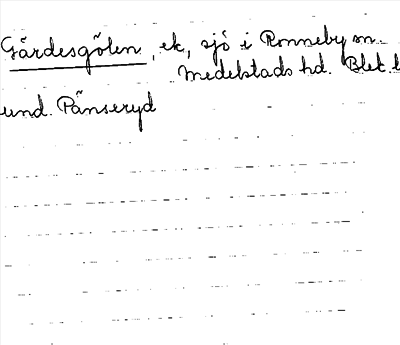 Gärdesgölen, ek, sjö i Ronneby sn.
Medelstads hd. Blek. l
und. Pånseryd